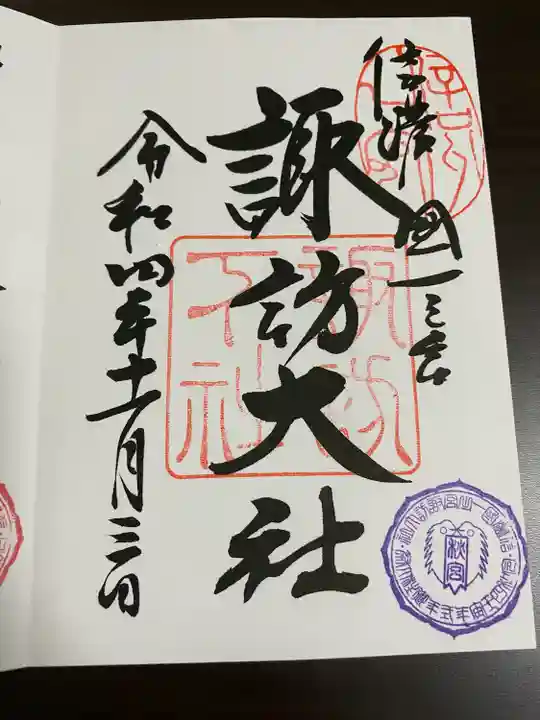 信濃國一之宮
諏訪大社
令和四年十一月三日
諏訪
下社
秋宮